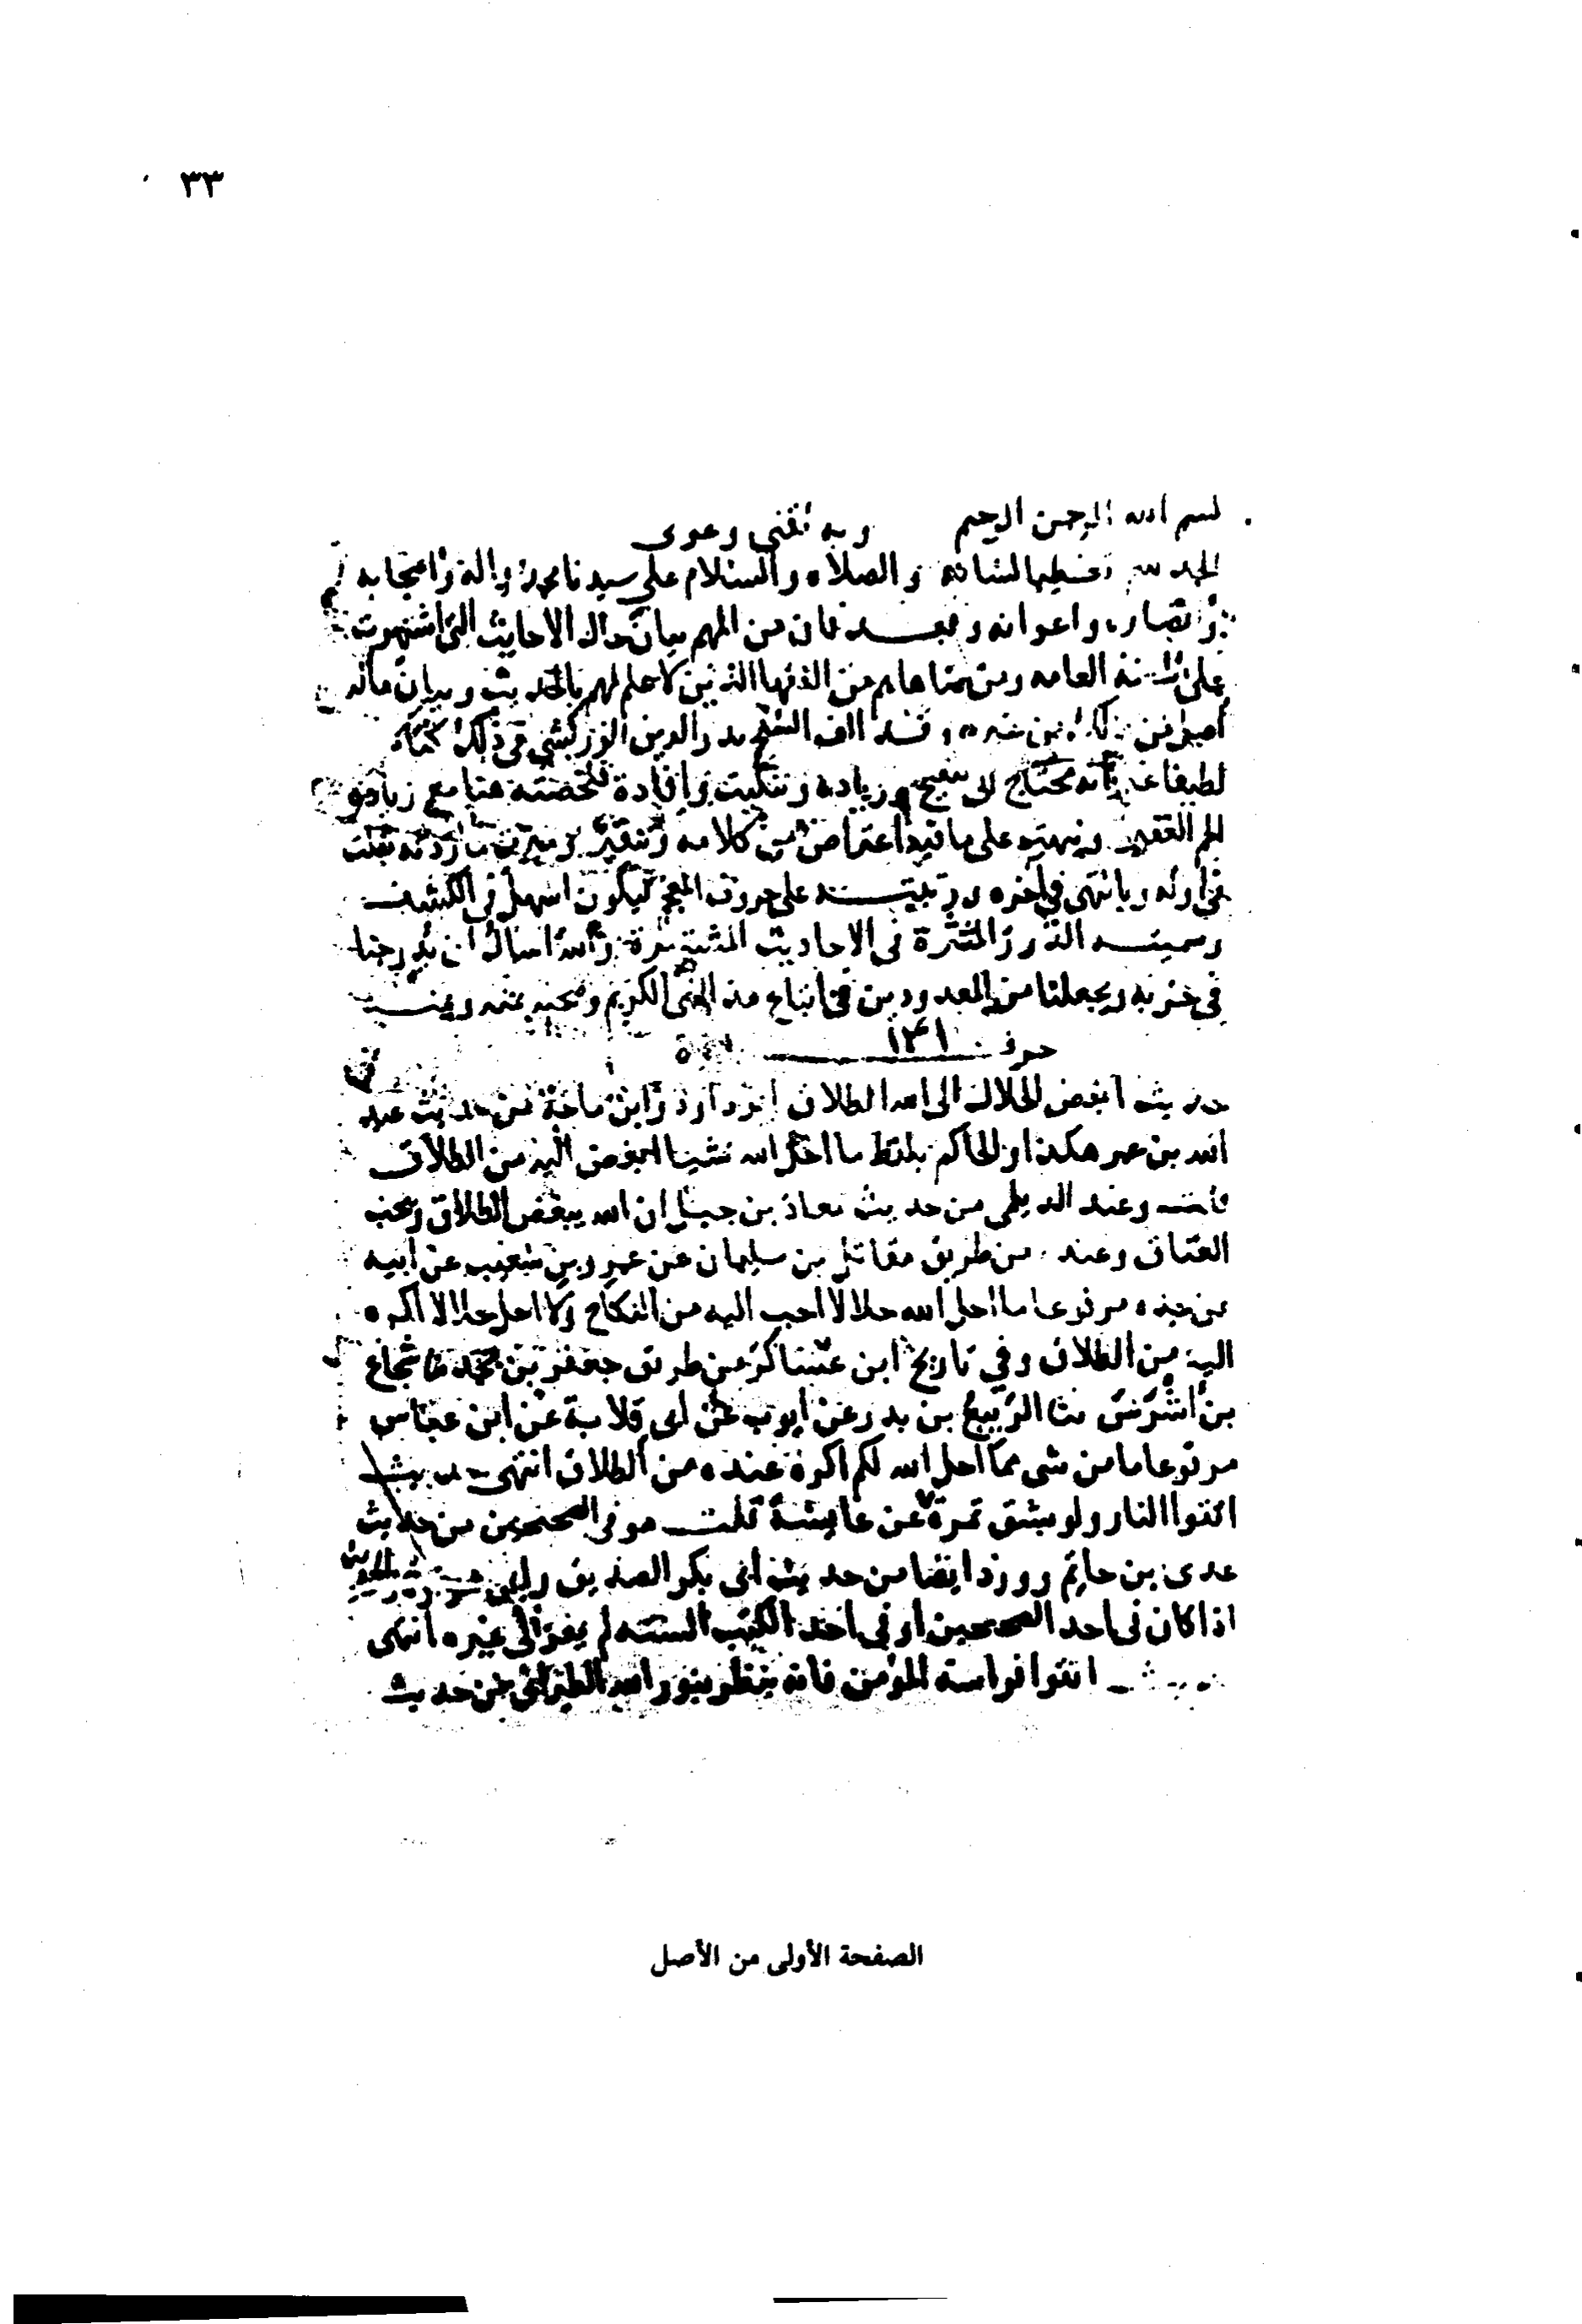 ٣٣
بسم الله الرحمن الرحيم وبه ثقتي وعوني
الحمد لله تعظيما لشانه والصلاه والسلام على سيدنا محمد واله واصحابه
وانصاره واعوانه وبعد فان من المهم بيان حال الاحاديث التي اشتهرت
على السنة العامه ومن ضاهاهم من الفقها الذين لا علم لهم بالحديث وبيان ماله
اصل من غيره وقد الف الشيخ بدر الدين الزركشي في ذلك كتابا
لطيفا غير انه محتاج الى تنقيح وزياده وتنكيت وافادة فلخصته هنا مع زيادة
الجم الغفير ونبهت على ما فيه اعتراض من كلامه وتنقير وميزت ما زدته بقلت
في اوله وبانتهى في آخره ورتبته على حروف المعجم ليكون اسهل في الكشف
وسميته الدرر المنتثرة في الاحاديث المشتهرة والله اسال ان يدرجنا
في حزبه ويجعلنا من المعدودين في اتباع هذا النبي الكريم وصحبه بمنه ويمنه
حرف
حديث ابغض الحلال الى الله الطلاق ابو داود وابن ماجة من حديث عبد
الله بن عمر هكذا والحاكم بلفظ ما احل الله شيئا ابغض اليه من الطلاق
قلت وعند الديلمي من حديث معاذ بن جبل ان الله يبغض الطلاق ويحب
العتاق وعنده من طريق مقاتل بن سليمان عن عمرو بن شعيب عن ابيه
عن جده مرفوعا ما احل الله حلالا احب اليه من النكاح ولا احل حلالا اكره
اليه من الطلاق وفي تاريخ ابن عساكر من طريق جعفر بن محمد نا شجاع
بن اشرس نا الربيع بن بدر عن ايوب عن ابى قلابة عن ابن عباس
مرفوعا ما من شى مما احل الله لكم اكره عنده من الطلاق انتهى حديث
اتقوا النار ولو بشق تمرة عن عايشة قلت هو في الصحيحين من حديث
عدى بن حاتم وورد ايضا من حديث ابى بكر الصديق والحديث
اذا كان في احد الصحيحين او في احد الكتب الستة لم يعز الى غيره انتهى
حديث اتقوا فراسة المؤمن فانه ينظر بنور الله الطبراني من حديث
الصفحة الأولى من الأصل